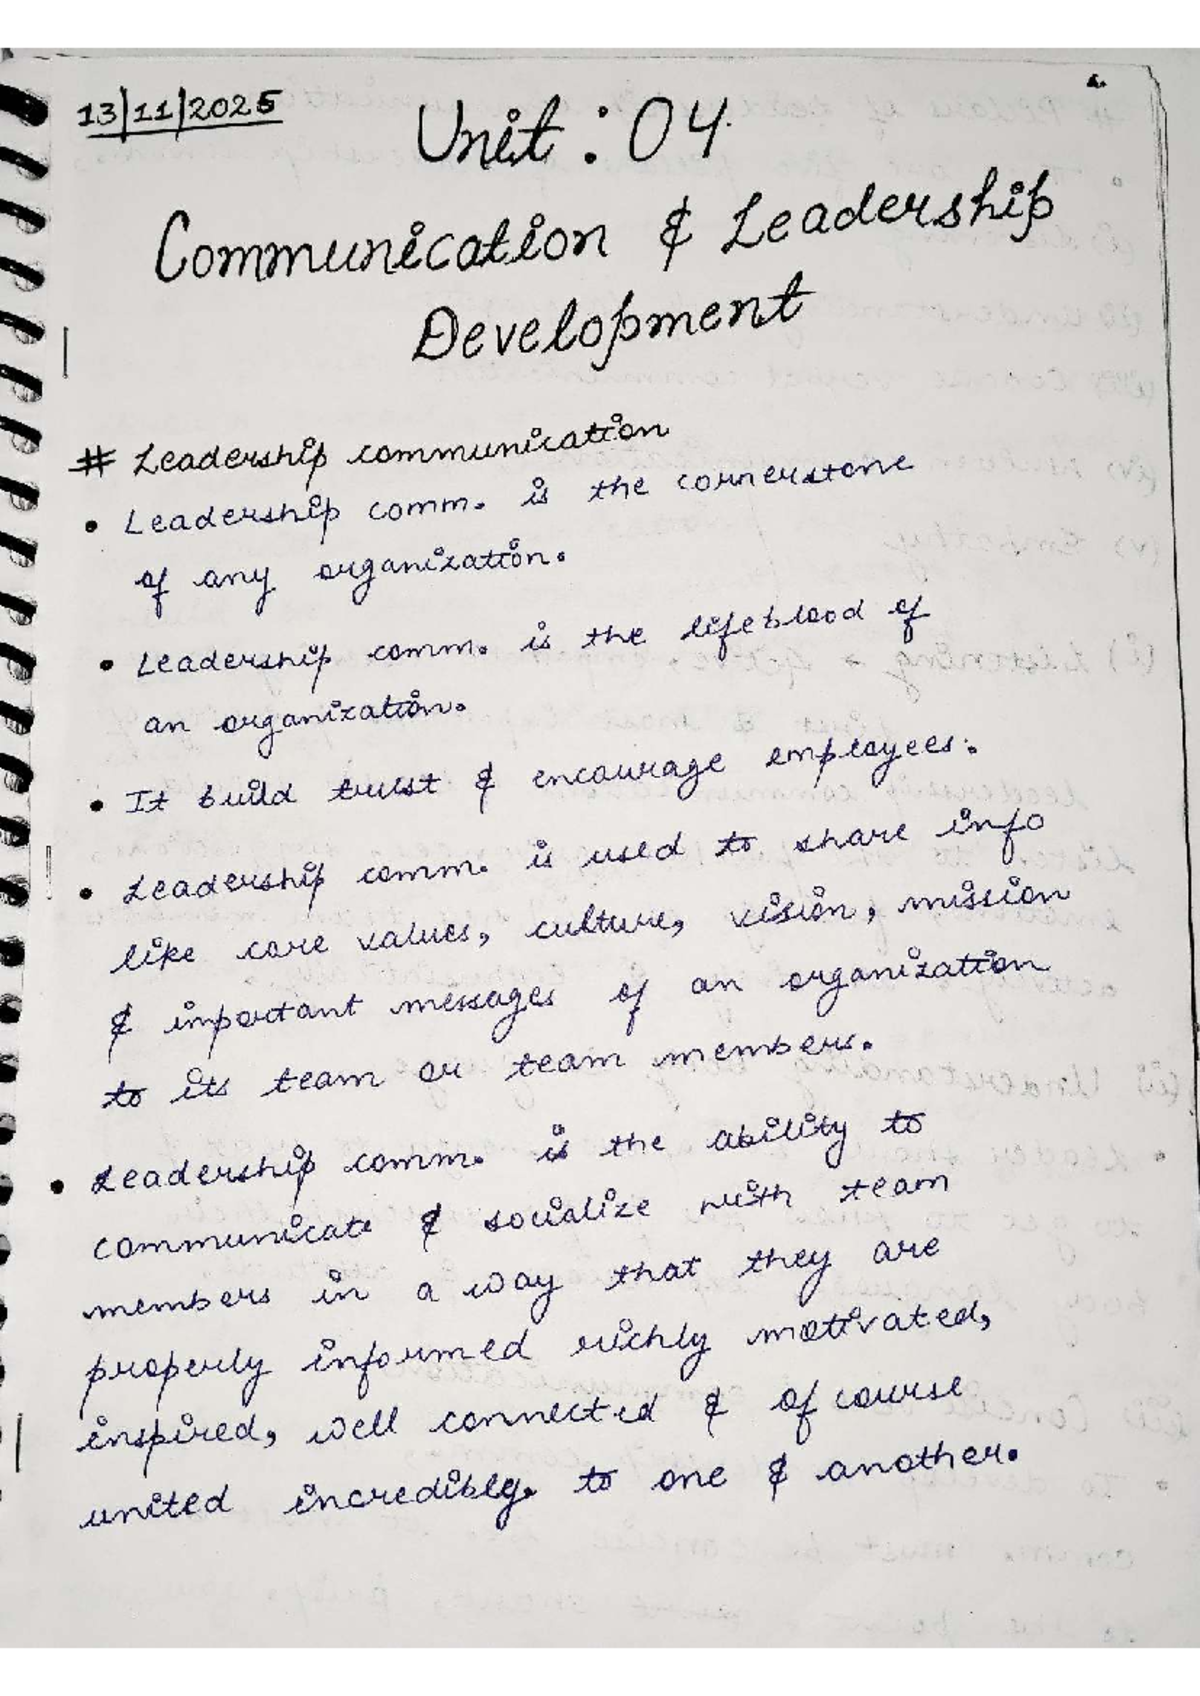 13/11/2025
Unit : 04
Communication & Leadership
Development
# Leadership communication
• Leadership comm. is the cornerstone
of any organization.
• Leadership comm. is the lifeblood of
an organization.
• It build trust & encourage employees.
• Leadership comm. is used to share info
like core values, culture, vision, mission
& important messages of an organization
to its team or team members.
• Leadership comm. is the ability to
communicate & socialize with team
members in a way that they are
properly informed richly motivated,
inspired, well connected & of course
united incredibly. to one & another.